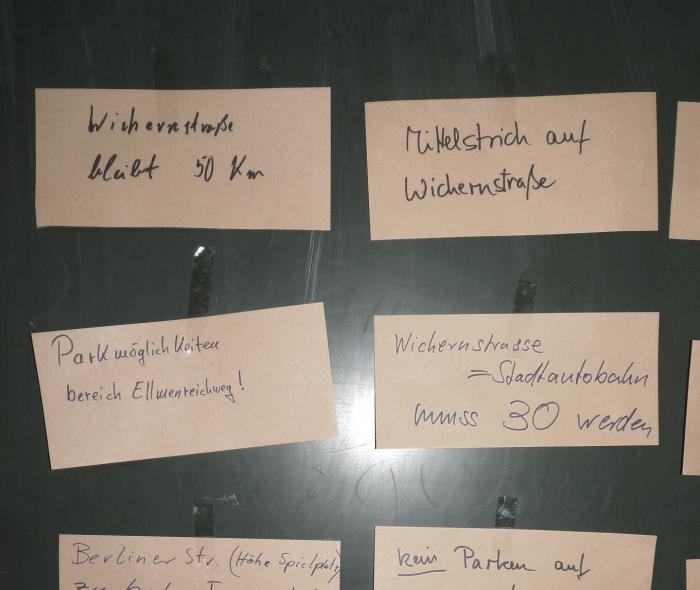 Wichernstraße
bleibt 50 Km
Mittelstrich auf
Wichernstraße
Parkmöglichkeiten
bereich Ellmenreichweg!
Wichernstrasse
=Stadtautobahn
muss 30 werden
Berliner Str. (Höhe Spielplatz)
kein Parken auf